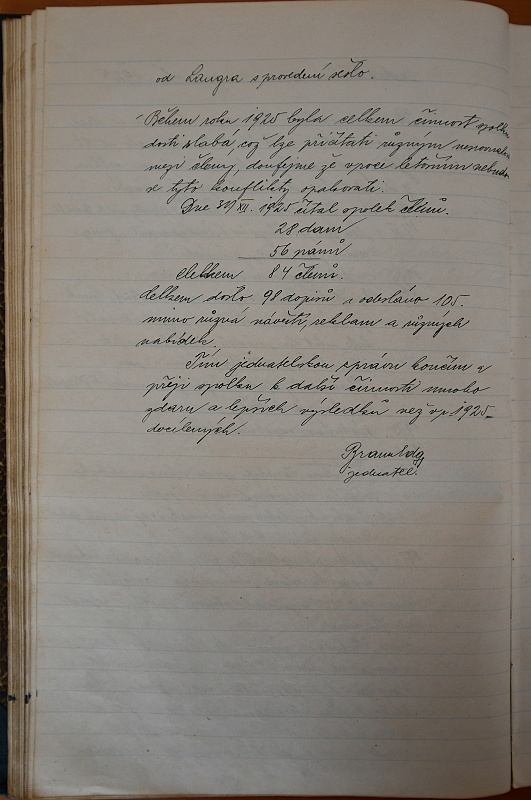 od Langra s provedení sešlo.
Během roku 1925 byla celkem činnost spolku
dosti slabá, což lze přičítati různým
mezi členy, doufejme že v roce letošním nebudou
se tyto konflikty opakovati.
Dne 31/XII. 1925 čítal spolek členů.
28 dam
56 pánů
Celkem 84 členů.
Celkem došlo 98 dopisů a odesláno 105.-
mimo různá návěstí, reklam a různých
nabídek.
Tím jednatelskou zprávu končím a
přeji spolku k další činnosti mnoho
zdaru a lepších výsledků než v r. 1925-
docílených.
jednatel.